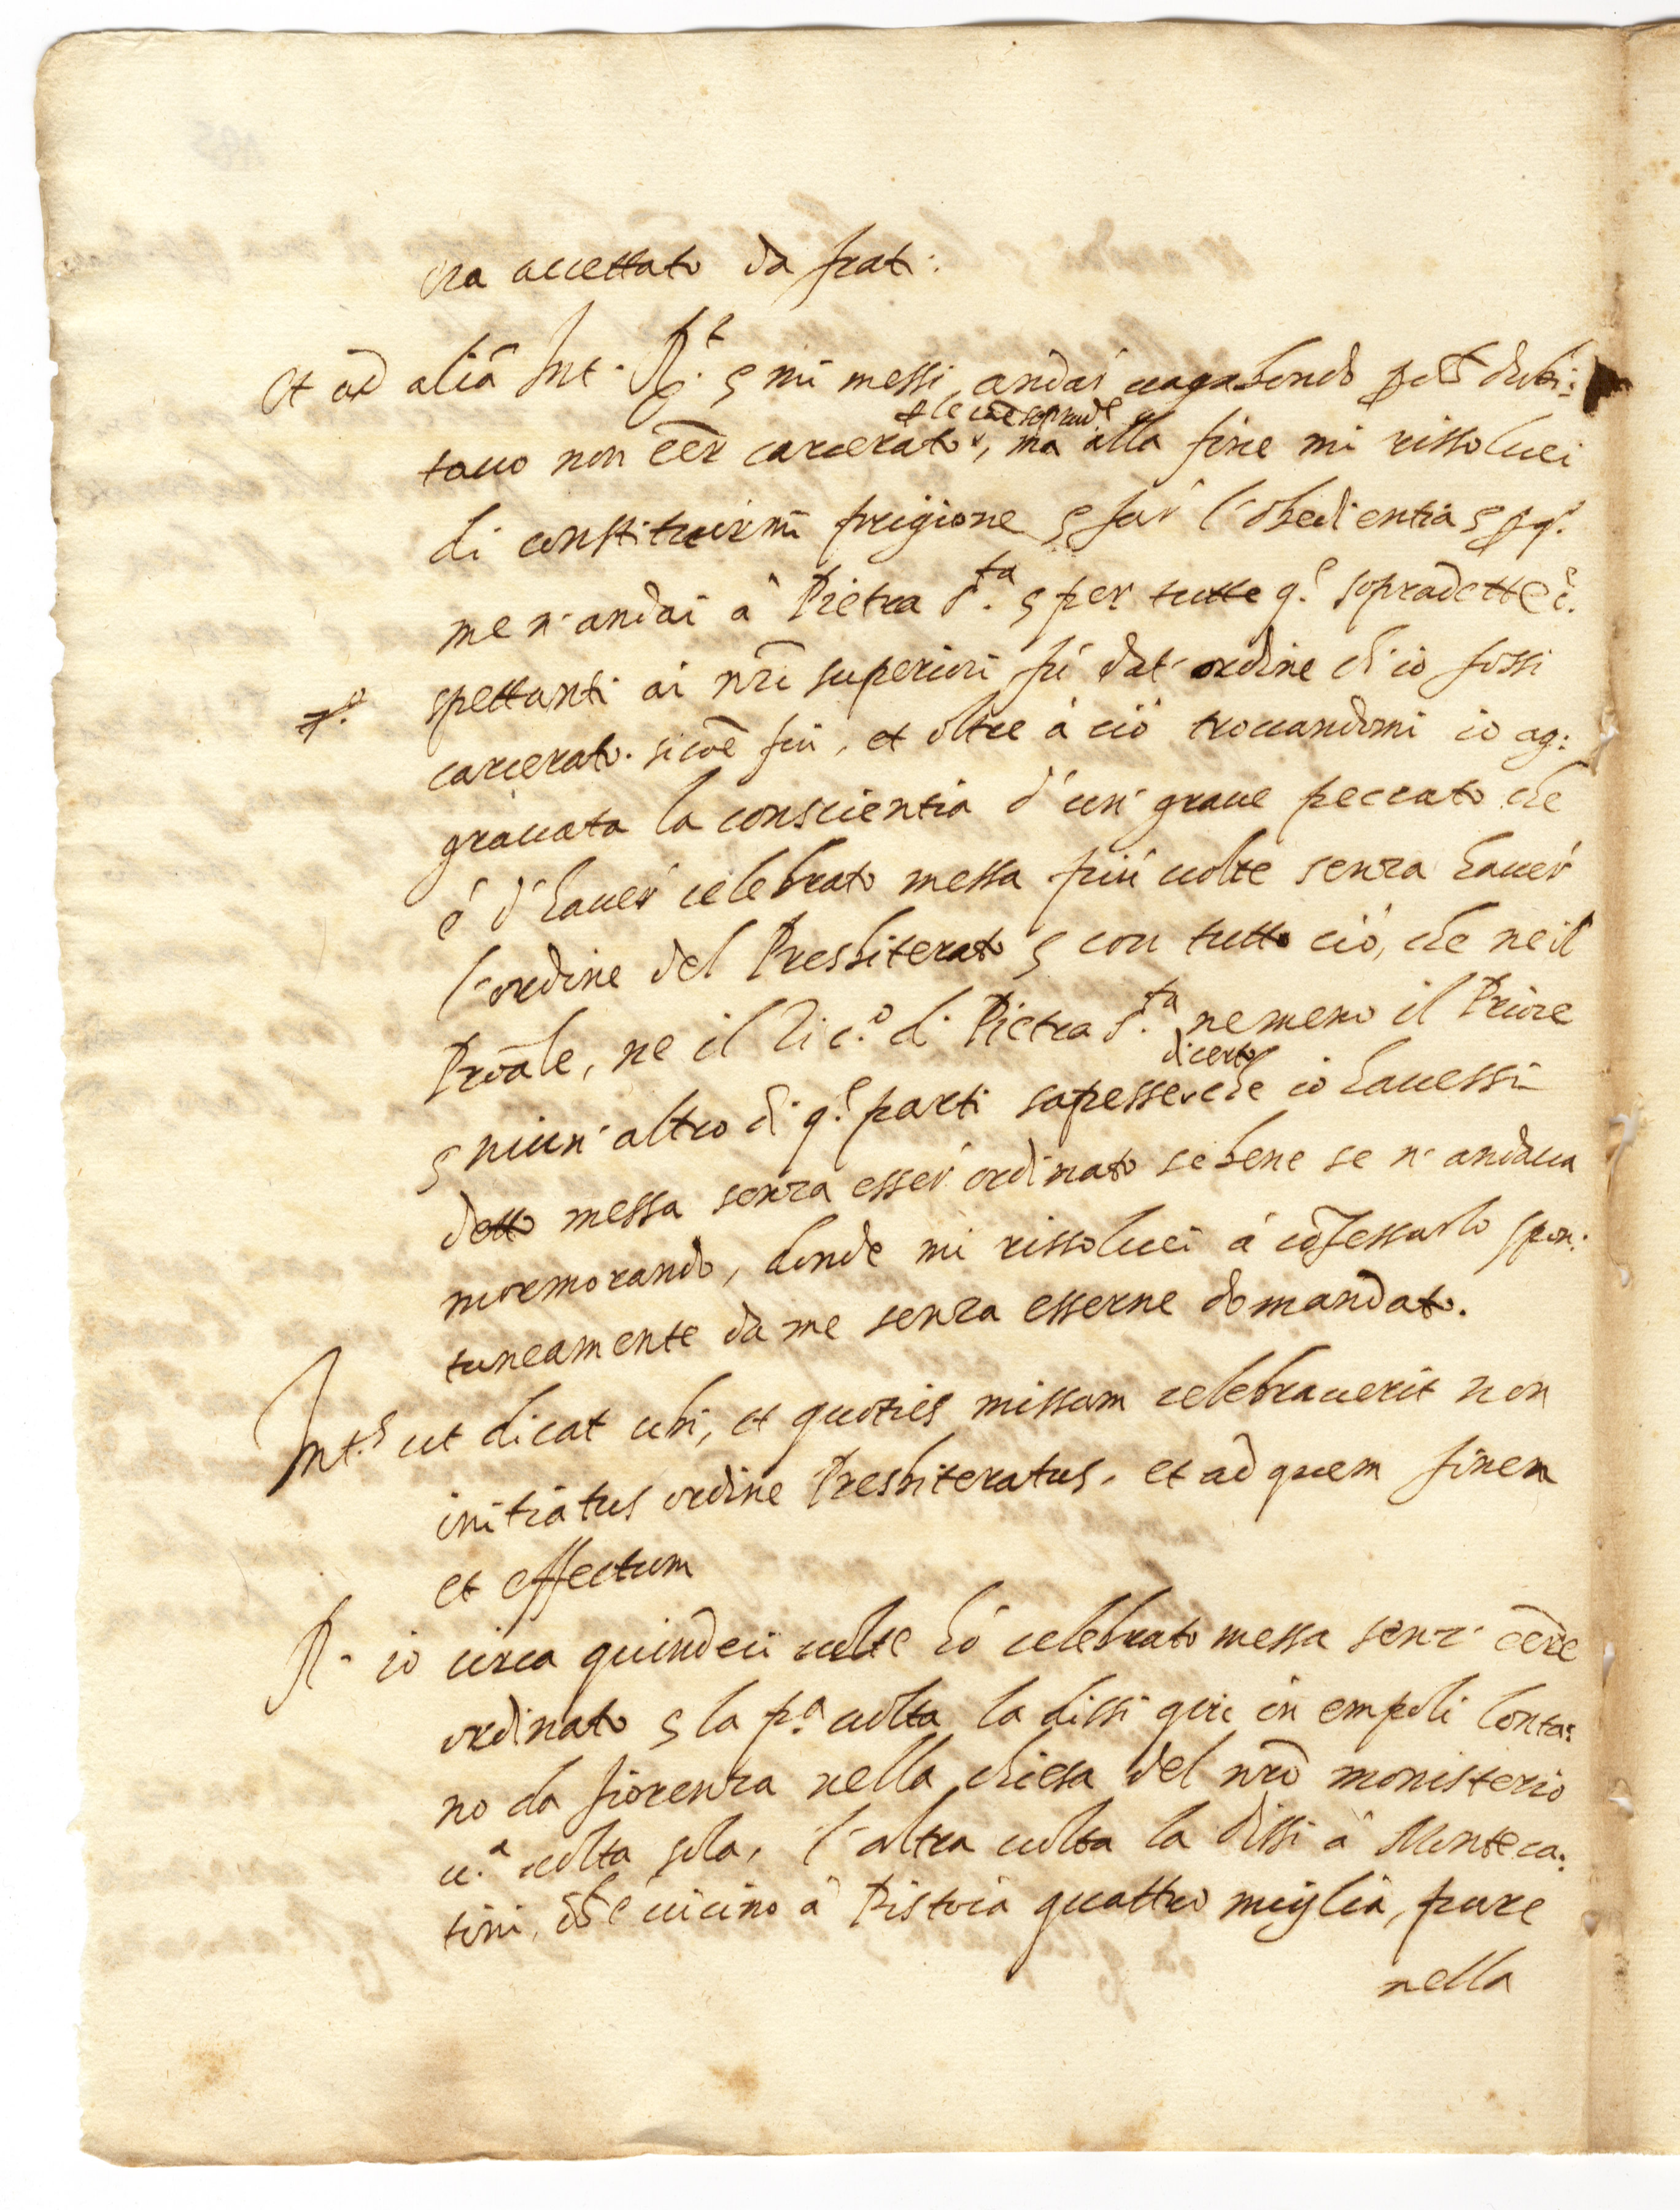 era accettato da frati.
Et ad aliã Int. R.t ꝫ mi messi andar uagabondo dubi:
ꝑ le cãe sopradᵉ
tauo non eẽr carcerato, ma alla fine mi rissoluei
di constituirmi prigione ꝫ far l'obedientia ꝫ ꝑ q.º
me n'andai à Pietra S.ta ꝫ per tutte q.e sopradette c.
spettanti ai nrĩ superiori fù dat'ordine ch'io fossi
carcerato. sicõe fui, et oltre à ciò trouandomi io ag:
grauata la conscientia d'un'graue peccato che
è d'hauer celebrato messa più uolte senza hauer
l'ordine del Presbiterato ꝫ con tutto ciò, che ne il
Proãle, ne il Vic.º di Pietra S.ta ne meno il Priore
di certo
ꝫ niun'altro di q.e parti sapesse che io hauessi
detto messa senza esser ordinato sebene se n'andaua
mormorando, donde mi rissoluei à cõfessarlo spon:
taneamente da me senza esserne domandato.
Int.s ut dicat ubi, et quoties missam celebrauerit non
initiatus ordine Presbiteratus, et ad quem finem
et effectum
R. io circa quindeci uolte hò celebrato messa senz'eẽre
ordinato ꝫ la p.a uolta la dissi qui in empoli lonta:
no da fiorenza nella chiesa del nrõ monisterio
u.a uolta sola, l'altra uolta la dissi à Monteca:
tini, uicino à Pistoia quattro miglia, pure
nella